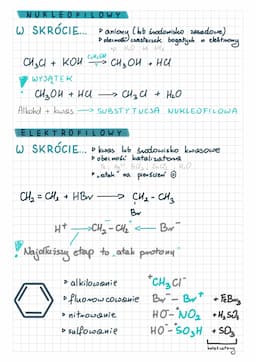 NUKLEOFILOWY
W SKRÓCIE...
▸ aniony (lub środowisko zasadowe)
▸ obecność cząsteczek bogatych w elektrony
CH₃Cl + KOH → CH₃OH + HCl
C₂H₅OH
WYJĄTEK
CH₃OH + HCl → CH₃Cl + H₂O
Alkohol + kwas → SUBSTYTUCJA NUKLEOFILOWA
ELEKTROFILOWY
W SKRÓCIE...
▸ kwas lub środowisko kwasowe
▸ obecność katalizatora
▸ "atak" na pierścień
CH₂ = CH₂ + HBr → CH₂ - CH₃
Br
H⁺ → CH₂ - CH₂ ← Br⁻
Najważniejszy etap to "atak protonu"
▸ alkilowanie
⁺CH₃Cl⁻
▸ fluorowcowanie
Br⁻ - Br⁺ + FeBr₃
▸ nitrowanie
HO⁻ NO₂ + H₂SO₄
▸ sulfowanie
HO⁻ SO₃H + SO₃
katalizatory